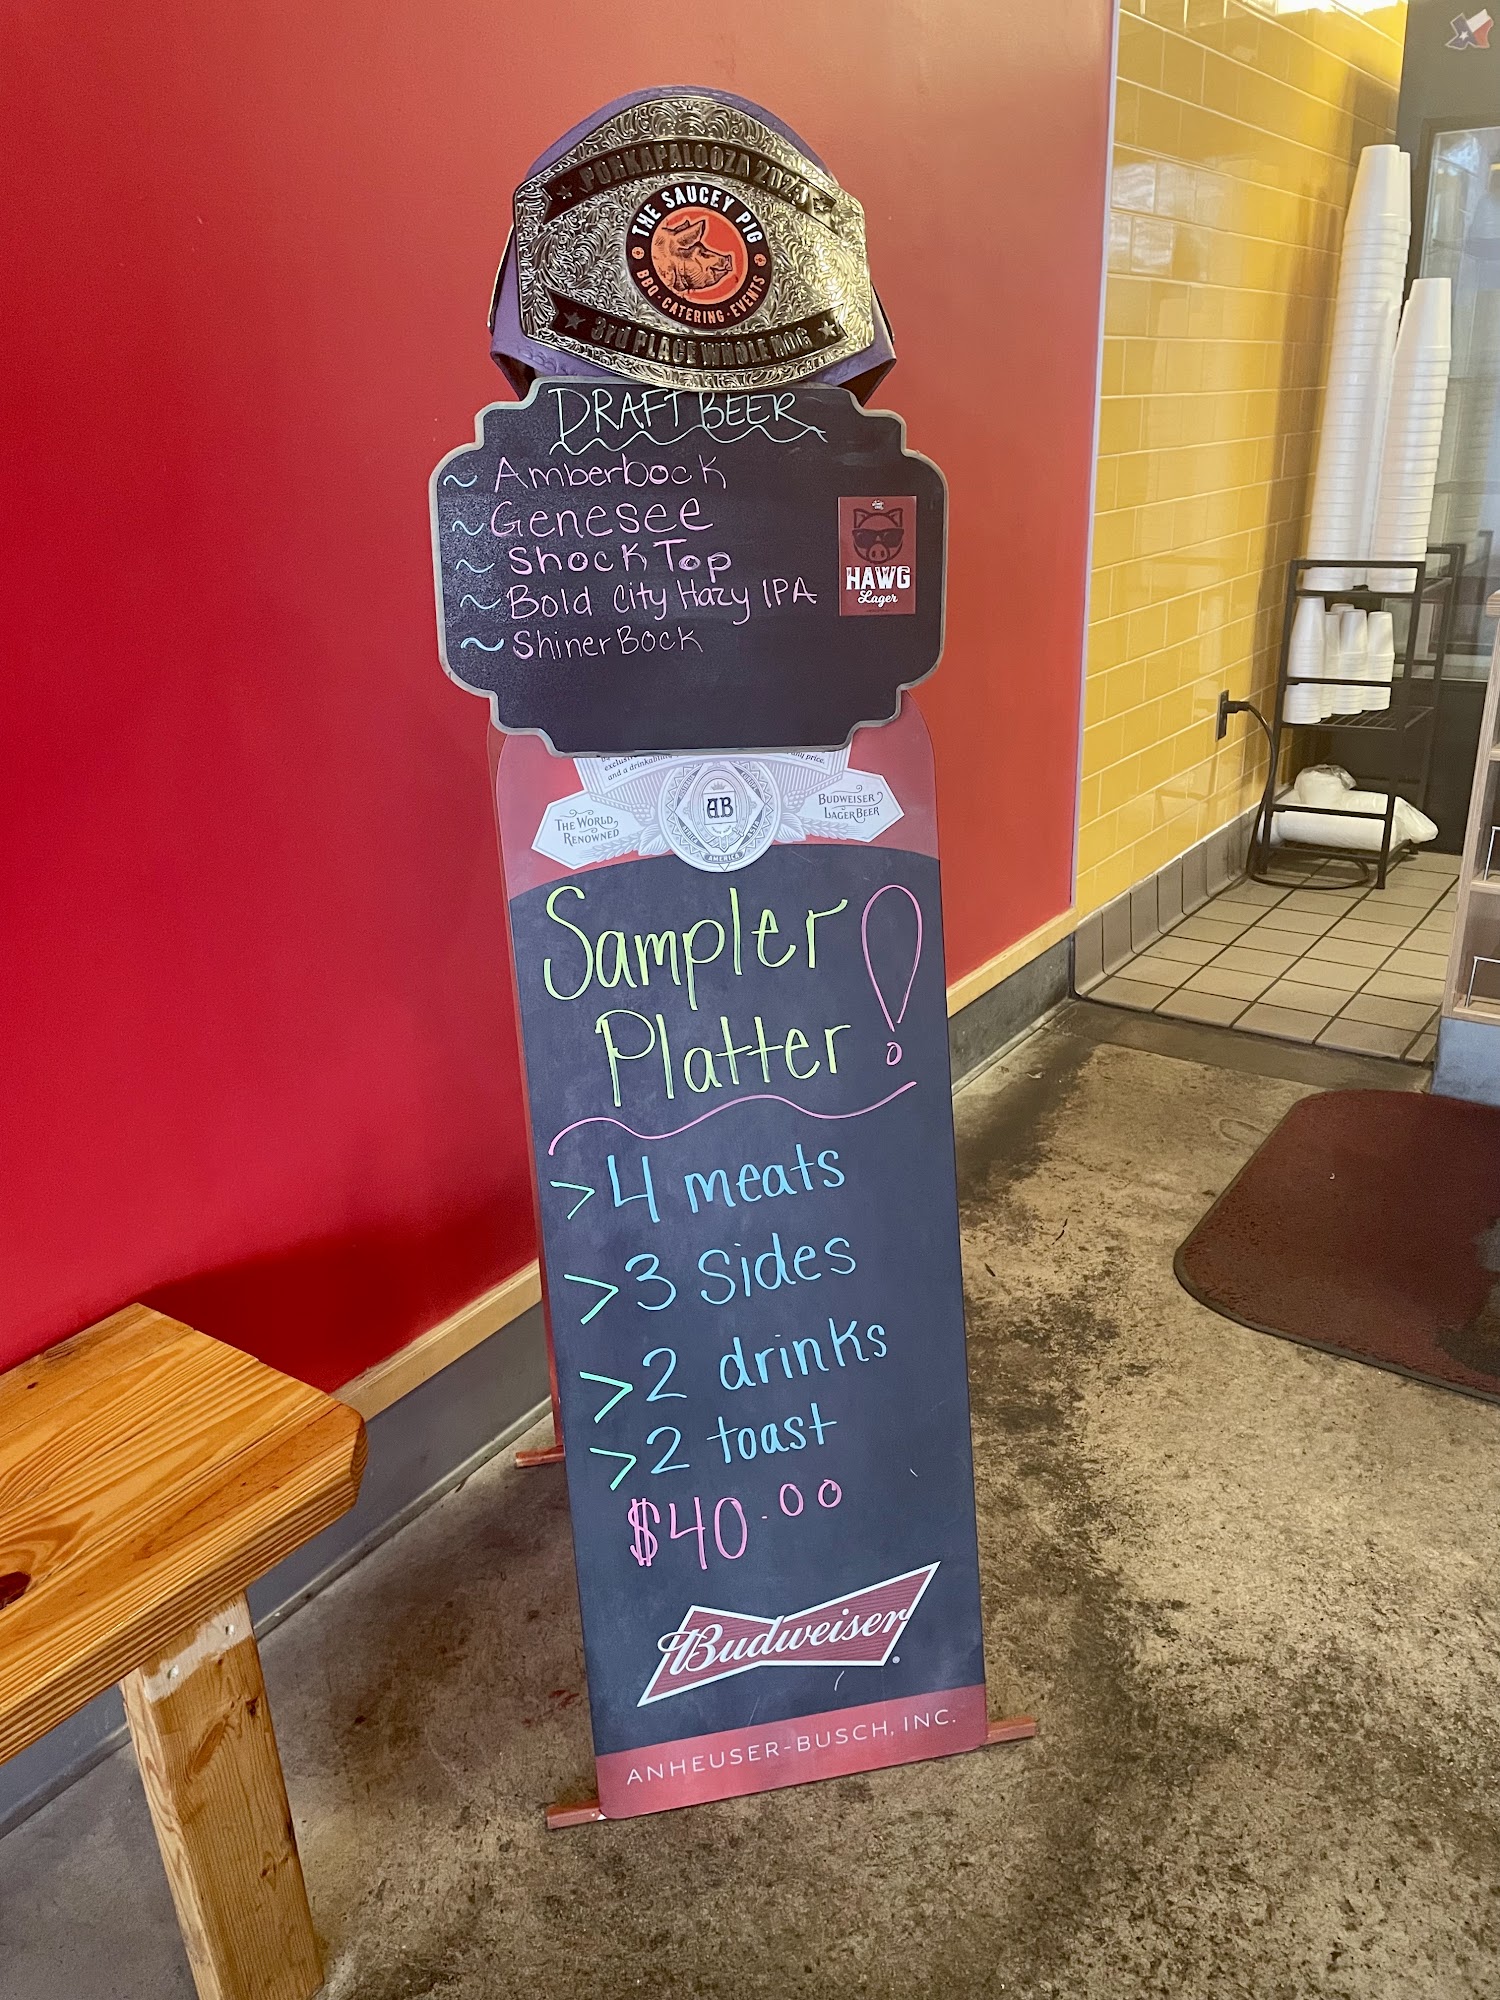 PORKAPALOOZA 2023
THE SAUCEY PIG
BBQ · CATERING · EVENTS
3rd PLACE WHOLE HOG
DRAFT BEER
~ Amberbock
~ Genesee
~ Shock Top
~ Bold City Hazy IPA
~ Shiner Bock
HAWG
Lager
any price.
and a drinkability
THE WORLD
RENOWNED
AB
AMERICA
BUDWEISER
LAGER BEER
Sampler
Platter!
> 4 meats
> 3 sides
> 2 drinks
> 2 toast
$40.00
Budweiser
ANHEUSER-BUSCH, INC.